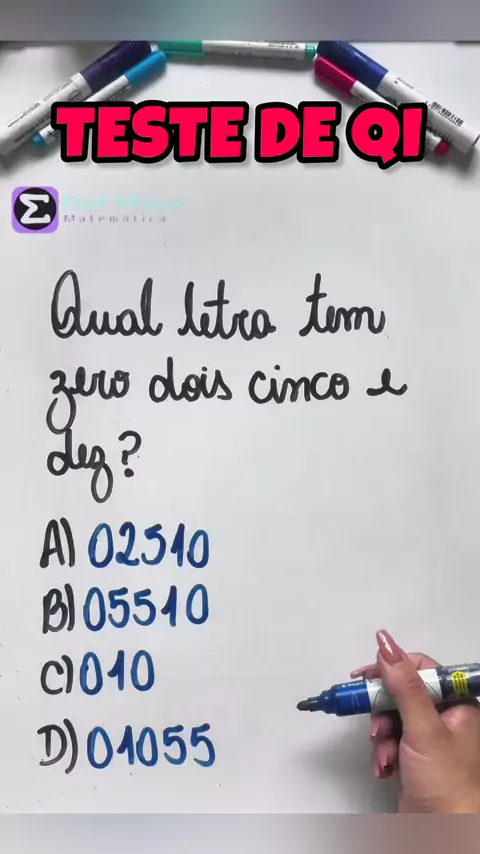 TESTE DE QI
Matemática
Qual letra tem
zero dois cinco e
dez?
A) 02510
B) 05510
C) 010
D) 01055